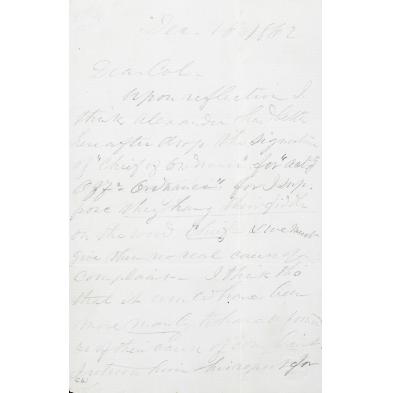 Dec. 16th 1862
Dear Col.
Upon reflection I
think Alexander had better
hereafter drop the signature
of "Chief of Ordnance" for "act'g
Off'r Ordnance" for I sup-
pose they hang their fiddle
on the word "Chief" & we must
give them no real cause of
complaint. I think tho'
that it would have been
more manly to have
of their cause of
between him